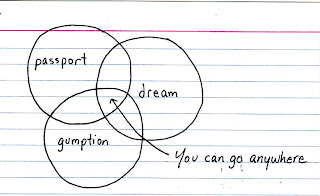 passport
dream
gumption
You can go anywhere